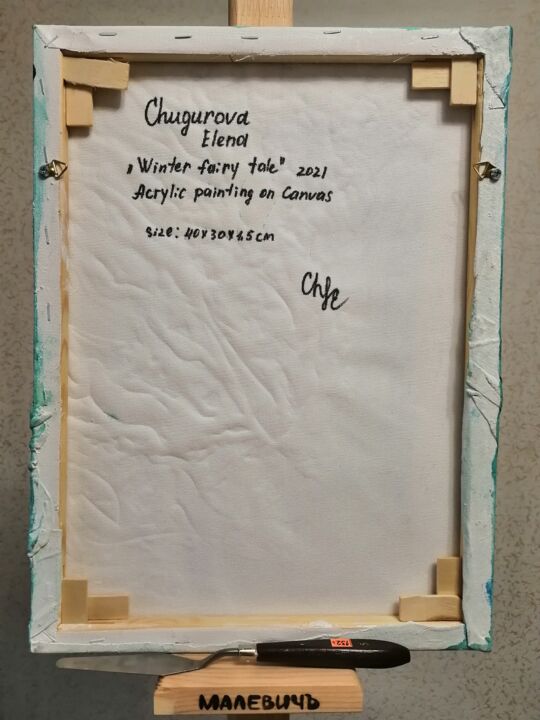 Chugurova
Elena
„Winter fairy tale" 2021
Acrylic painting on Canvas
size: 40x30x1,5 cm
ChfE
МАЛЕВИЧЪ